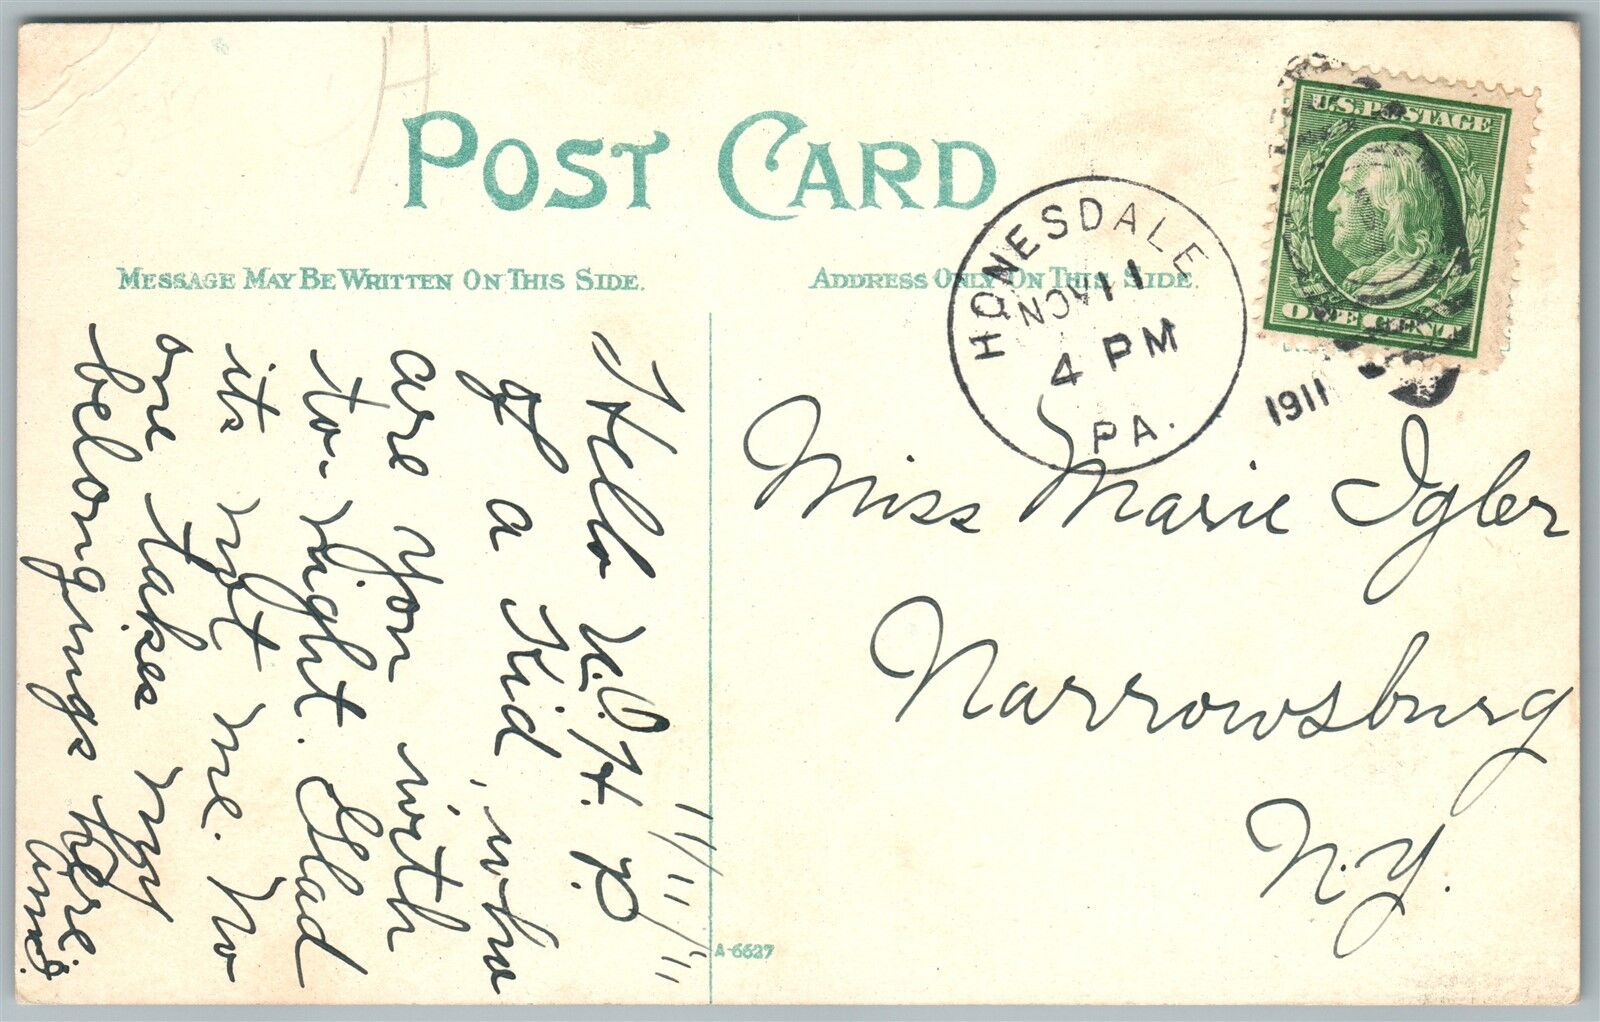 POST CARD
MESSAGE MAY BE WRITTEN ON THIS SIDE.
ADDRESS ONLY ON THIS SIDE.
U.S. POSTAGE
ONE CENT
HONESDALE
NOV 11
4 PM
PA.
1911
11/11/'11
Hello N.O.H.P.
of a Kid, who
are you with
to-night. Glad
its not me. No
one takes my
belongings here.
Miss Marie Igler
Narrowsburg
N.Y.
A-6627
H